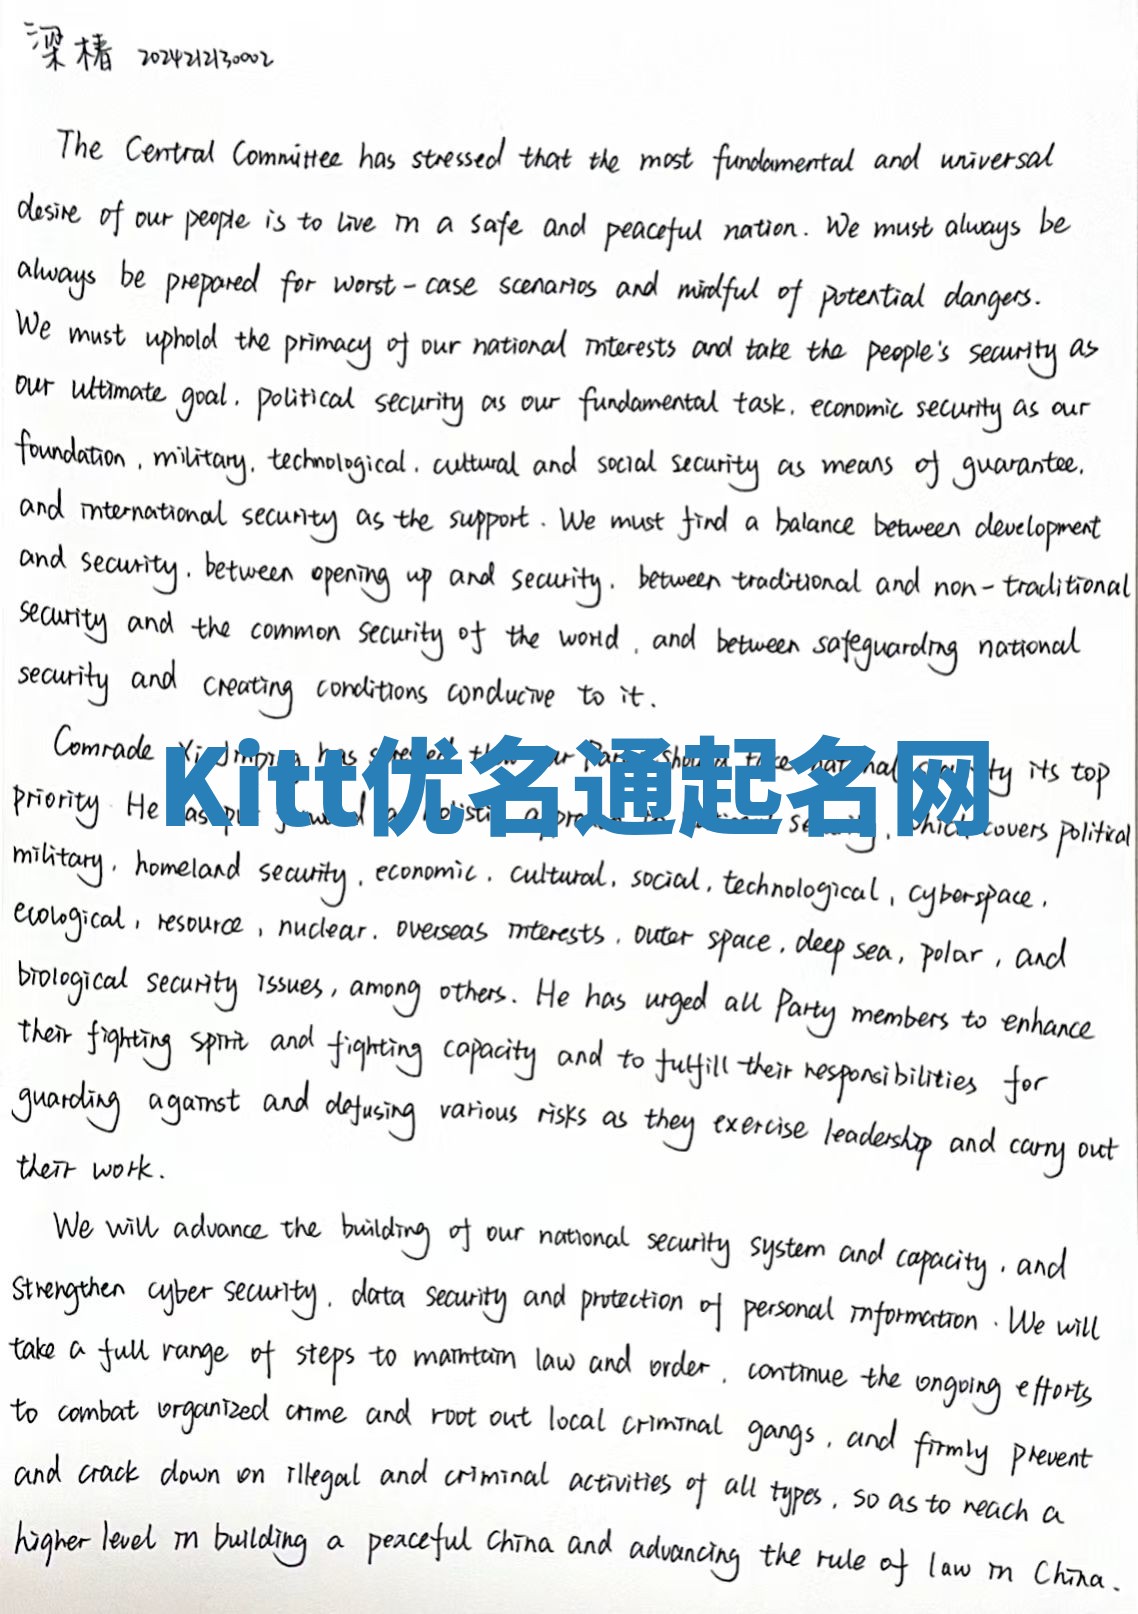 梁椿 2024212130002
The Central Committee has stressed that the most fundamental and universal
desire of our people is to live in a safe and peaceful nation. We must always be
always be prepared for worst-case scenarios and mindful of potential dangers.
We must uphold the primacy of our national interests and take the people's security as
our ultimate goal, political security as our fundamental task, economic security as our
foundation, military, technological, cultural and social security as means of guarantee,
and international security as the support. We must find a balance between development
and security, between opening up and security, between traditional and non-traditional
security and the common security of the world, and between safeguarding national
security and creating conditions conducive to it.
Comrade Xi Jinping has stressed our Party should take national security its top
Kitt优名通起名网
priority. He has put forward a holistic approach to national security, which covers political
military, homeland security, economic, cultural, social, technological, cyberspace,
ecological, resource, nuclear, overseas interests, outer space, deep sea, polar, and
biological security issues, among others. He has urged all Party members to enhance
their fighting spirit and fighting capacity and to fulfill their responsibilities for
guarding against and defusing various risks as they exercise leadership and carry out
their work.
We will advance the building of our national security system and capacity, and
strengthen cyber security, data security and protection of personal information. We will
take a full range of steps to maintain law and order, continue the ongoing efforts
to combat organized crime and root out local criminal gangs, and firmly prevent
and crack down on illegal and criminal activities of all types, so as to reach a
higher level in building a peaceful China and advancing the rule of law in China.